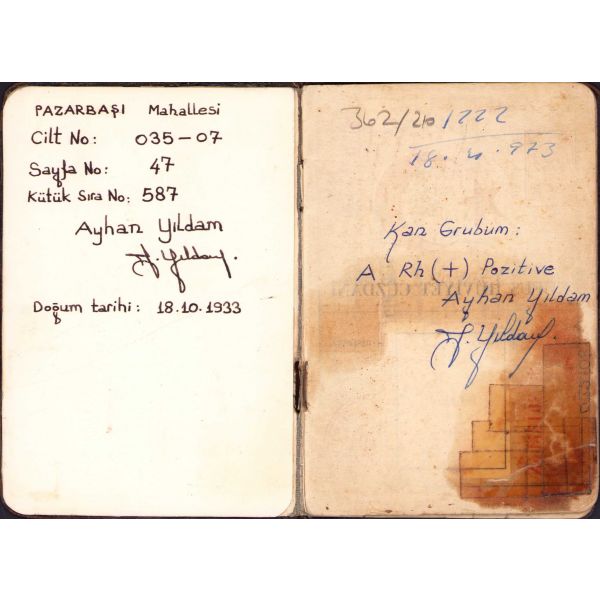 PAZARBAŞI Mahallesi
Cilt No: 035-07
Sayfa No: 47
Kütük Sıra No: 587
Ayhan Yıldam
A. Yıldam.
Doğum tarihi: 18.10.1933
362/210/222
18.4.973
Kan Grubum:
A Rh(+) Pozitive
Ayhan Yıldam
A. Yıldam.
HÜVİYET CÜZDANI